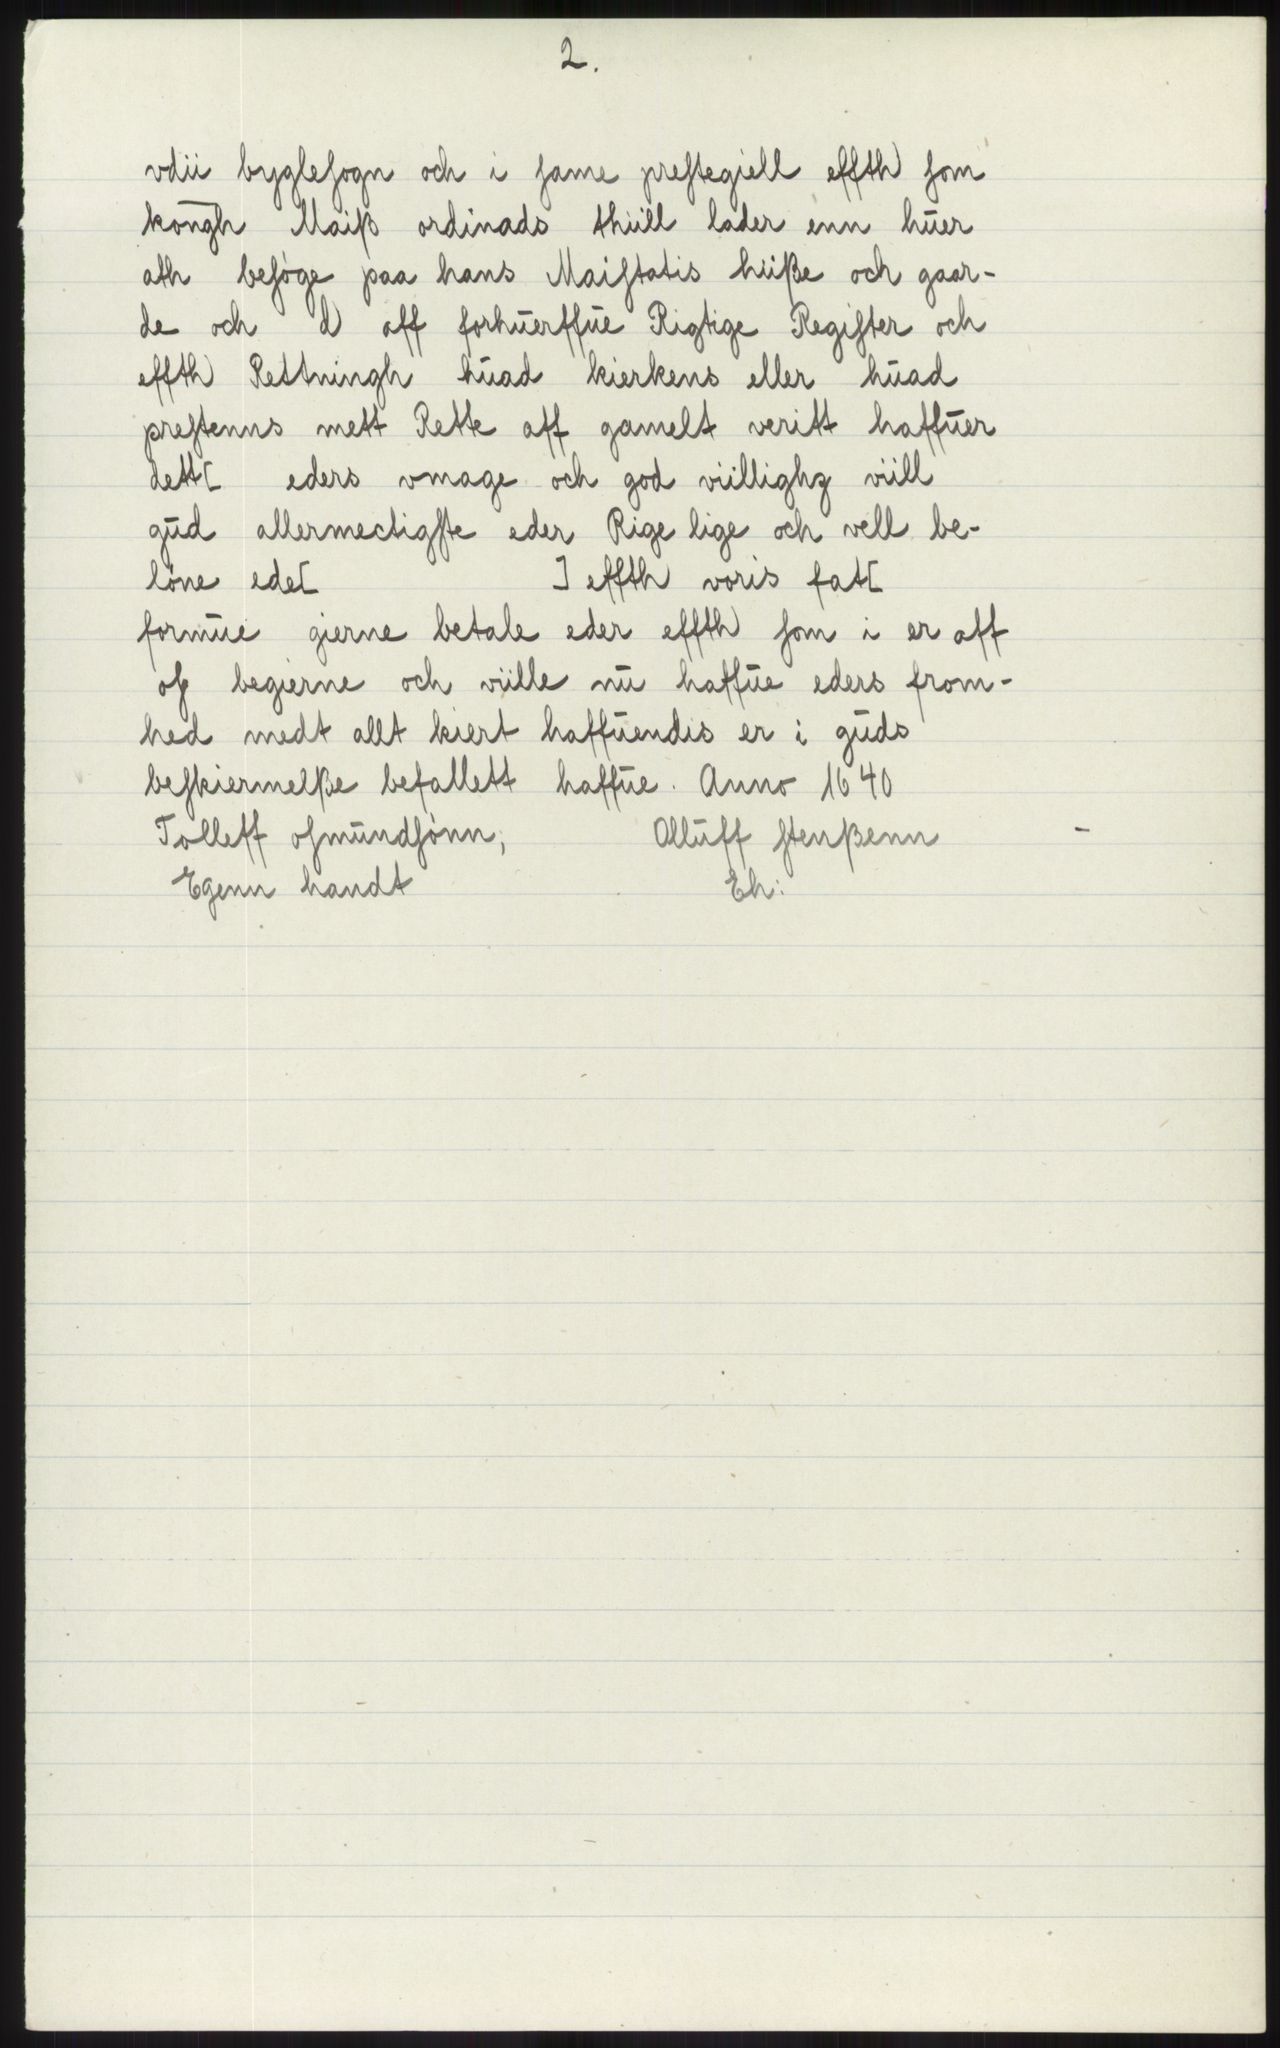 2.
vdii byglesogn och i same prestegiell effth som
kongh Maiß ordinads thiill lader enn huer
ath besöge paa hans Maistatis hüße och gaar-
de och d aff forhuerffue Rigtige Register och
effth Rettningh huad kierkens eller huad
prestenns mett Rette aff gamelt veritt haffuer
dett[ eders vmage och god viillighz viill
gud allermectigste eder Rige lige och vell be-
löne ede[ ] effth voris fat[
formue gierne betale eder effth som i er aff
os begierne och viille nu haffue eders from-
hed medt allt kiert haffuendis er i guds
beskiermelße befallett haffue. Anno 1640
Tolleff osmundsönn, Olluff stenßenn -
Egenn handt Eh: